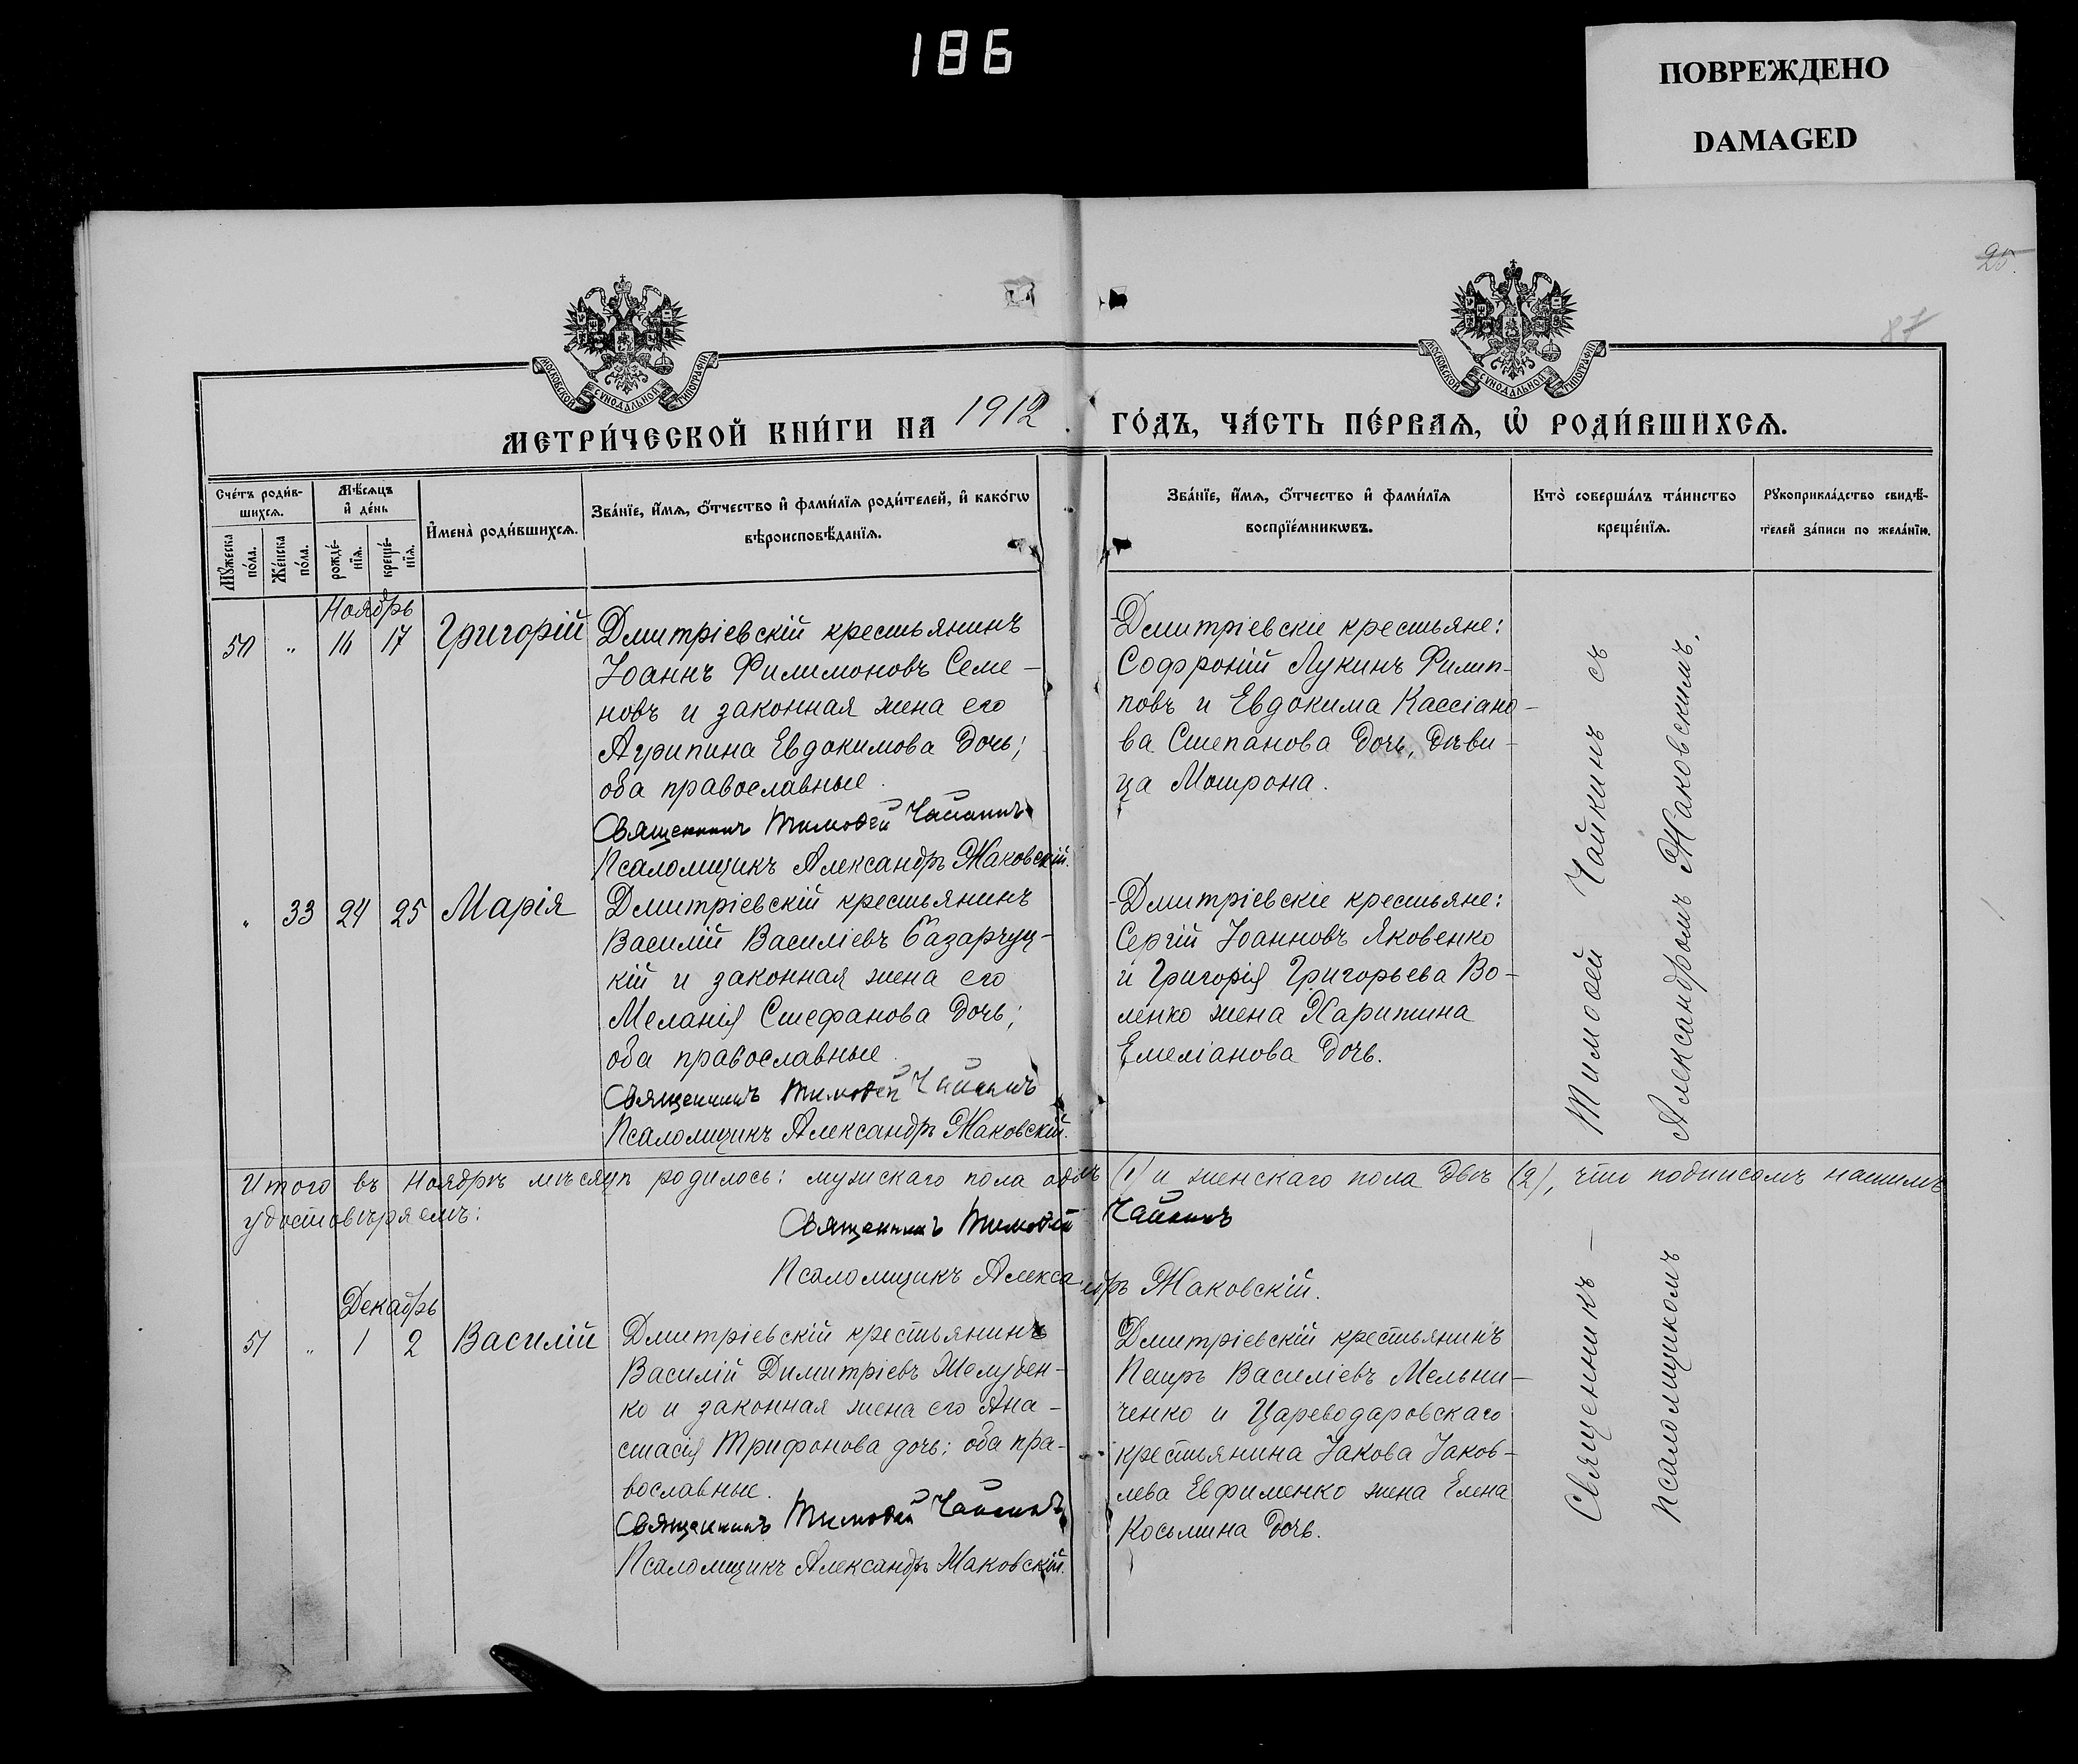 186
ПОВРЕЖДЕНО
DAMAGED
25.
87
МОСКОВСКОЙ СѴНОДАЛЬНОЙ ТИПОГРАФІИ
МОСКОВСКОЙ СѴНОДАЛЬНОЙ ТИПОГРАФІИ
МЕТРИ́ЧЕСКОЙ КНИ́ГИ НА 1912 ГО́ДЪ, ЧА́СТЬ ПЕ́РВАѦ, Ѽ РОДИ́ВШИХСѦ.
Сче́тъ роди́в-
шихсѧ.
Мꙋ́жеска
по́ла.
Же́нска
по́ла.
Мѣ́сѧцъ
и҆ де́нь
рожде́-
нїѧ.
креще́-
нїѧ.
И҆мена̀ роди́вшихсѧ.
Зва́нїе, и҆́мѧ, ѻ҆́тчество и҆ фами́лїѧ роди́телей, и҆ како́гѡ
вѣроисповѣ́данїѧ.
Зва́нїе, и҆́мѧ, ѻ҆́тчество и҆ фами́лїѧ
воспрїе́мникѡвъ.
Кто̀ соверша́лъ та́инство
креще́нїѧ.
Рꙋкоприкла́дство свидѣ́-
телей за́писи по жела́нїю.
Ноябрь
50 „ 16 17 Григорій
Дмитріевскій крестьянинъ
Іоаннъ Филимоновъ Семе-
новъ и законная жена его
Агрипина Евдокимова дочь;
оба православные.
Священникъ Тимоѳей Чайкинъ
Псаломщикъ Александръ Жаковскій.
Дмитріевскіе крестьяне:
Софроній Лукинъ Филип-
повъ и Евдокима Кассіано-
ва Степанова дочь, дѣви-
ца Мотрона.
„ 33 24 25 Марія
Дмитріевскій крестьянинъ
Василій Василіевъ Базарчуц-
кій и законная жена его
Меланія Стефанова дочь;
оба православные.
Священникъ Тимоѳей Чайкинъ
Псаломщикъ Александръ Жаковскій.
Дмитріевскіе крестьяне:
Сергій Іоанновъ Яковенко
и Григорія Григорьева Во-
ленко жена Харитина
Емеліанова дочь.
Итого въ Ноябрѣ мѣсяцѣ родилось: мужскаго пола одинъ (1) и женскаго пола двѣ (2), что подписомъ нашимъ
удостовѣряемъ:
Священникъ Тимоѳей Чайкинъ
Псаломщикъ Александръ Жаковскій.
Декабрь
51 „ 1 2 Василій
Дмитріевскій крестьянинъ
Василій Димитріевъ Желубен-
ко и законная жена его Ана-
стасія Трифонова дочь; оба пра-
вославные.
Священникъ Тимоѳей Чайкинъ
Псаломщикъ Александръ Жаковскій.
Дмитріевскій крестьянинъ
Петръ Василіевъ Мельни-
ченко и Цареводаровскаго
крестьянина Іакова Іаков-
лева Евфименко жена Елена
Косьмина дочь.
Священникъ – Тимоѳей Чайкинъ съ
псаломщикомъ Александромъ Жаковскимъ.